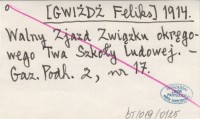 o
[GWIŻDŻ Feliks] 1914.
Walny Zjazd Związku okręgo-
wego Twa Szkoły Ludowej. -
Gaz. Podh. 2, nr 17.